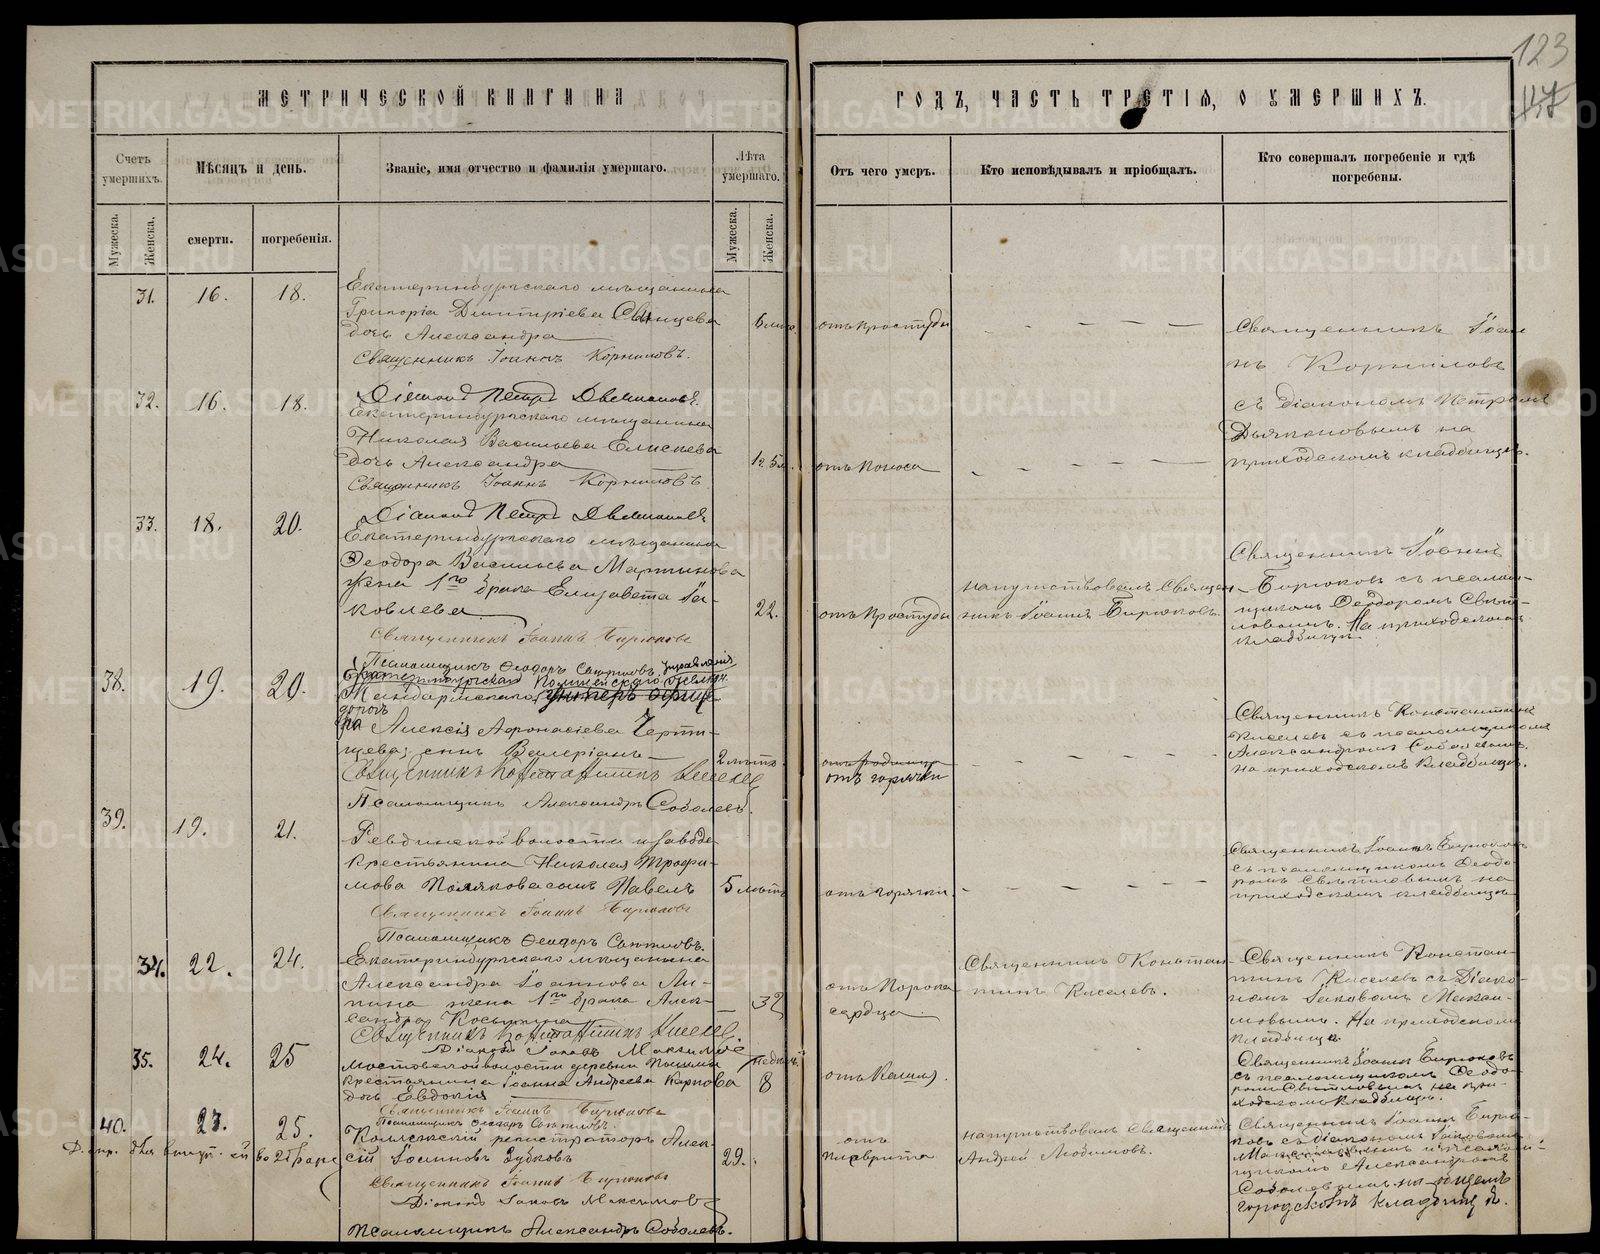 123
МЕТРИЧЕСКОЙ КНИГИ НА
ГОДЪ, ЧАСТЬ ТРЕТІЯ, О УМЕРШИХЪ.
Счетъ умершихъ.
Мѣсяцъ и день.
Званіе, имя отчество и фамилія умершаго.
Лѣта умершаго.
Отъ чего умеръ.
Кто исповѣдывалъ и пріобщалъ.
Кто совершалъ погребеніе и гдѣ
погребены.
Мужеска.
Женска.
смерти.
погребенія.
Мужеска.
Женска.
31. 16. 18.
Екатеринбургскаго мѣщанина
Григорія Димитріева
дочь Александра
Священникъ Іоаннъ Корниловъ.
отъ простуды
Священникъ Іоан
нъ Корниловъ
съ діакономъ Петромъ
на
приходскомъ кладбищѣ.
32. 16. 18.
Діаконъ Петръ
Екатеринбургскаго мѣщанина
Николая Васильева Елисѣева
дочь Александра
Священникъ Іоаннъ Корниловъ.
отъ поноса
33. 18. 20.
Діаконъ Петръ
Екатеринбургскаго мѣщанина
Ѳеодора Васильева Мартинова
жена 1го брака Елизавета Іа-
ковлева
Священникъ Іоаннъ Бирюковъ
22.
отъ простуды
напутствовалъ Священ-
никъ Іоаннъ Бирюковъ.
Священникъ Іоаннъ
Бирюковъ съ псалом-
щикомъ Ѳеодоромъ Свѣт-
ловымъ. На приходскомъ
кладбищѣ.
38. 19. 20.
Псаломщикъ Ѳеодоръ
Управленія
Жандармскаго унтеръ офице
ра Алексія Афонасіева
сынъ Валеріанъ
Священникъ Константинъ Киселевъ
Псаломщикъ Александръ Соболевъ.
2 лѣтъ.
отъ горячки
Священникъ Константинъ
Киселевъ съ псаломщикомъ
Александромъ Соболевымъ.
на приходскомъ кладбищѣ.
39. 19. 21.
Ревдинской волости и завода
крестьянина Николая Трофи-
мова Полякова сынъ Павелъ
Священникъ Іоаннъ Бирюковъ
5 лѣтъ
отъ горячки.
Священникъ Іоаннъ Бирюковъ
съ псаломщикомъ Ѳеодо-
ромъ Свѣтловымъ на
приходскомъ кладбищѣ
34. 22. 24.
Псаломщикъ Ѳеодоръ
Екатеринбургскаго мѣщанина
Александра Іоаннова Ла-
пина жена 1го брака Алек-
сандра Косьмина
Священникъ Константинъ Киселевъ
Діаконъ Іаковъ Максимовъ
32
отъ порока
сердца
Священникъ Констан-
тинъ Киселевъ.
Священникъ Констан-
тинъ Киселевъ съ Діако-
номъ Іаковомъ Макси-
мовымъ. На приходскомъ
кладбищѣ
35. 24. 25
волости деревни
крестьянина Іоанна Андреева Карпова
дочь Евдокія
Священникъ Іоаннъ Бирюковъ
недѣль
8
отъ кашля.
Священникъ Іоаннъ Бирюковъ
съ псаломщикомъ Ѳеодо-
ромъ Свѣтловымъ на при-
ходскомъ кладбищѣ.
40. 23. 25.
Псаломщикъ Ѳеодоръ
Коллежскій регистраторъ Алек-
сій Іоанновъ Зубковъ
Священникъ Іоаннъ Бирюковъ
Діаконъ Іаковъ Максимовъ
Псаломщикъ Александръ Соболевъ.
29.
отъ
плеврита
напутствовалъ Священникъ
Андрей Любимовъ.
Священникъ Іоаннъ Бирю-
ковъ съ діакономъ Іаковомъ
Максимовымъ и псалом-
щикомъ Александромъ
Соболевымъ на общемъ
городскомъ кладбищѣ.
METRIKI.GASO-URAL.RU